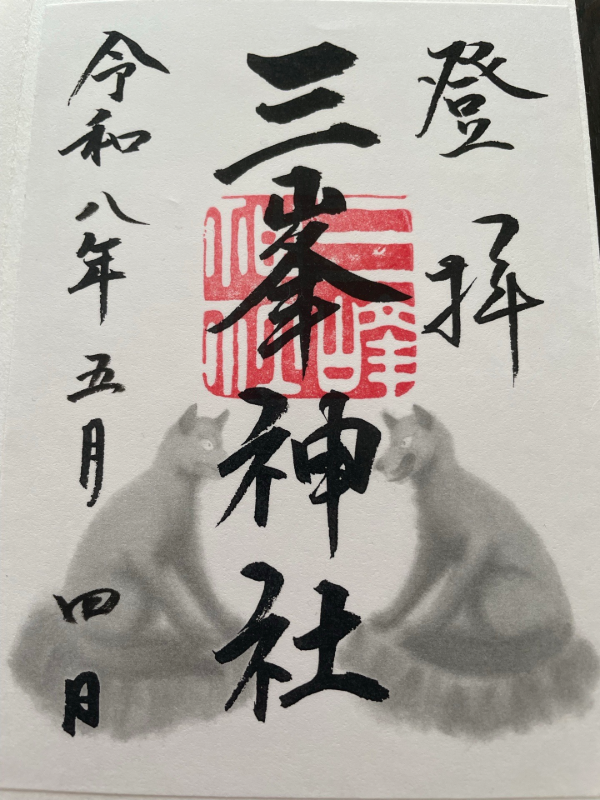 登拝
三峯神社
三峰神社
令和八年五月四日